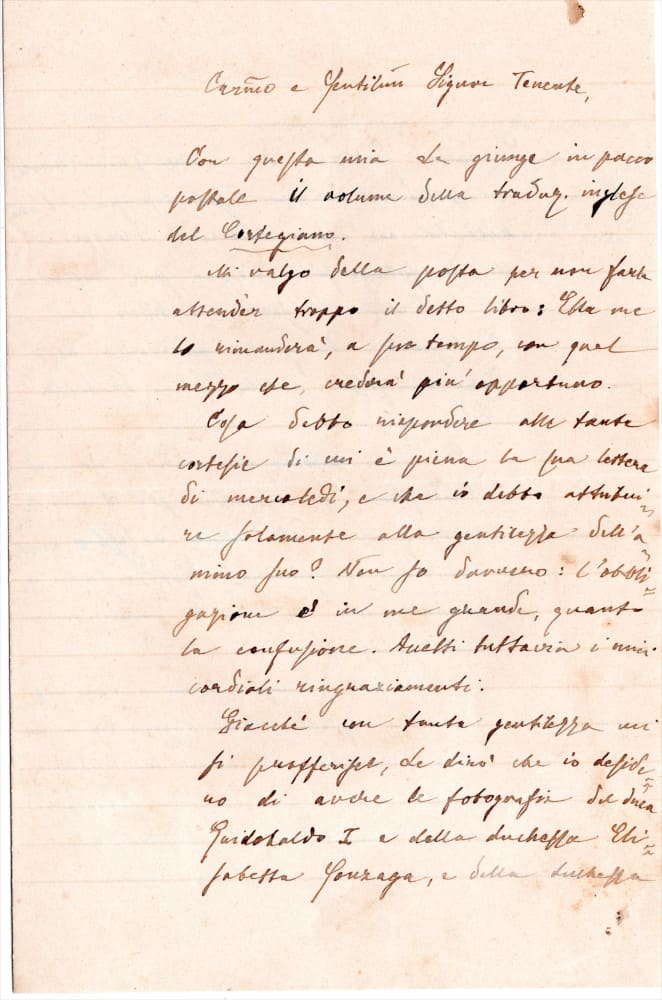 Carmo e Gentilm Signor Tenente,
Con questa mia Le giunge in pacco
postale il volume della traduz. inglese
del Cortegiano.
Mi valgo della posta per non farle
attender troppo il detto libro: Ella me
lo rimanderà, a suo tempo, con quel
mezzo che, crederà più opportuno.
Cosa debbo rispondere alle tante
cortesie di cui è piena la sua lettera
di mercoledì, e che io debbo attribui=
re solamente alla gentilezza dell'a=
nimo suo? Non so davvero: l'obbli=
gazione è in me grande, quanto
la confusione. Accetti tuttavia i miei
cordiali ringraziamenti.
Giacchè con tanta gentilezza mi
si profferisce, Le dirò che io deside=
ro di avere le fotografie del duca
Guidobaldo I e della duchessa Eli=
sabetta Gonzaga, e della duchessa